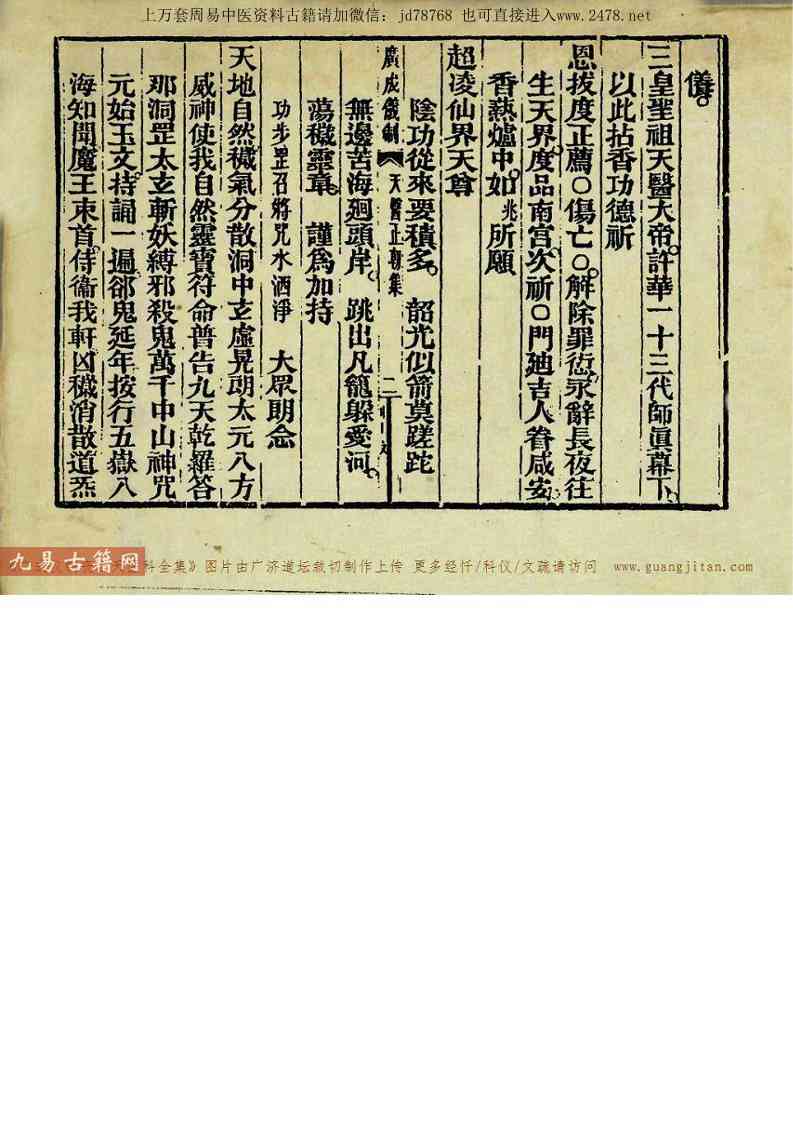 上万套周易中医资料古籍请加微信：jd78768 也可直接进入www.2478.net
儀。
三皇聖祖天醫大帝。許華一十三代師眞幕下。
以此拈香功德祈
恩拔度正薦○傷亡○。解除罪愆。永辭長夜。往
生天界。度品南宮。次祈○門廸吉。人眷咸安。
香熱爐中。如兆所願
超凌仙界天尊
陰功從來要積多。 韶光似箭莫蹉跎
廣成儀制 天醫正朝集 二
無邊苦海廻頭岸。 跳出凡籠躱愛河。
蕩穢靈章。 謹爲加持
功步罡召將咒水洒淨 大眾朗念
天地自然。穢氣分散洞中玄虛晃朗太元八方
威神使我自然靈寶符命普告九天乾羅答
那洞罡太玄斬妖縛邪殺鬼萬千中山神咒
元始玉文。持誦一遍。郤鬼延年按行五嶽八
海知聞魔王束首。侍衞我軒凶穢消散道炁
九易古籍网
科全集》图片由广济道坛裁切制作上传 更多经忏/科仪/文疏请访问 www.guangjitan.com